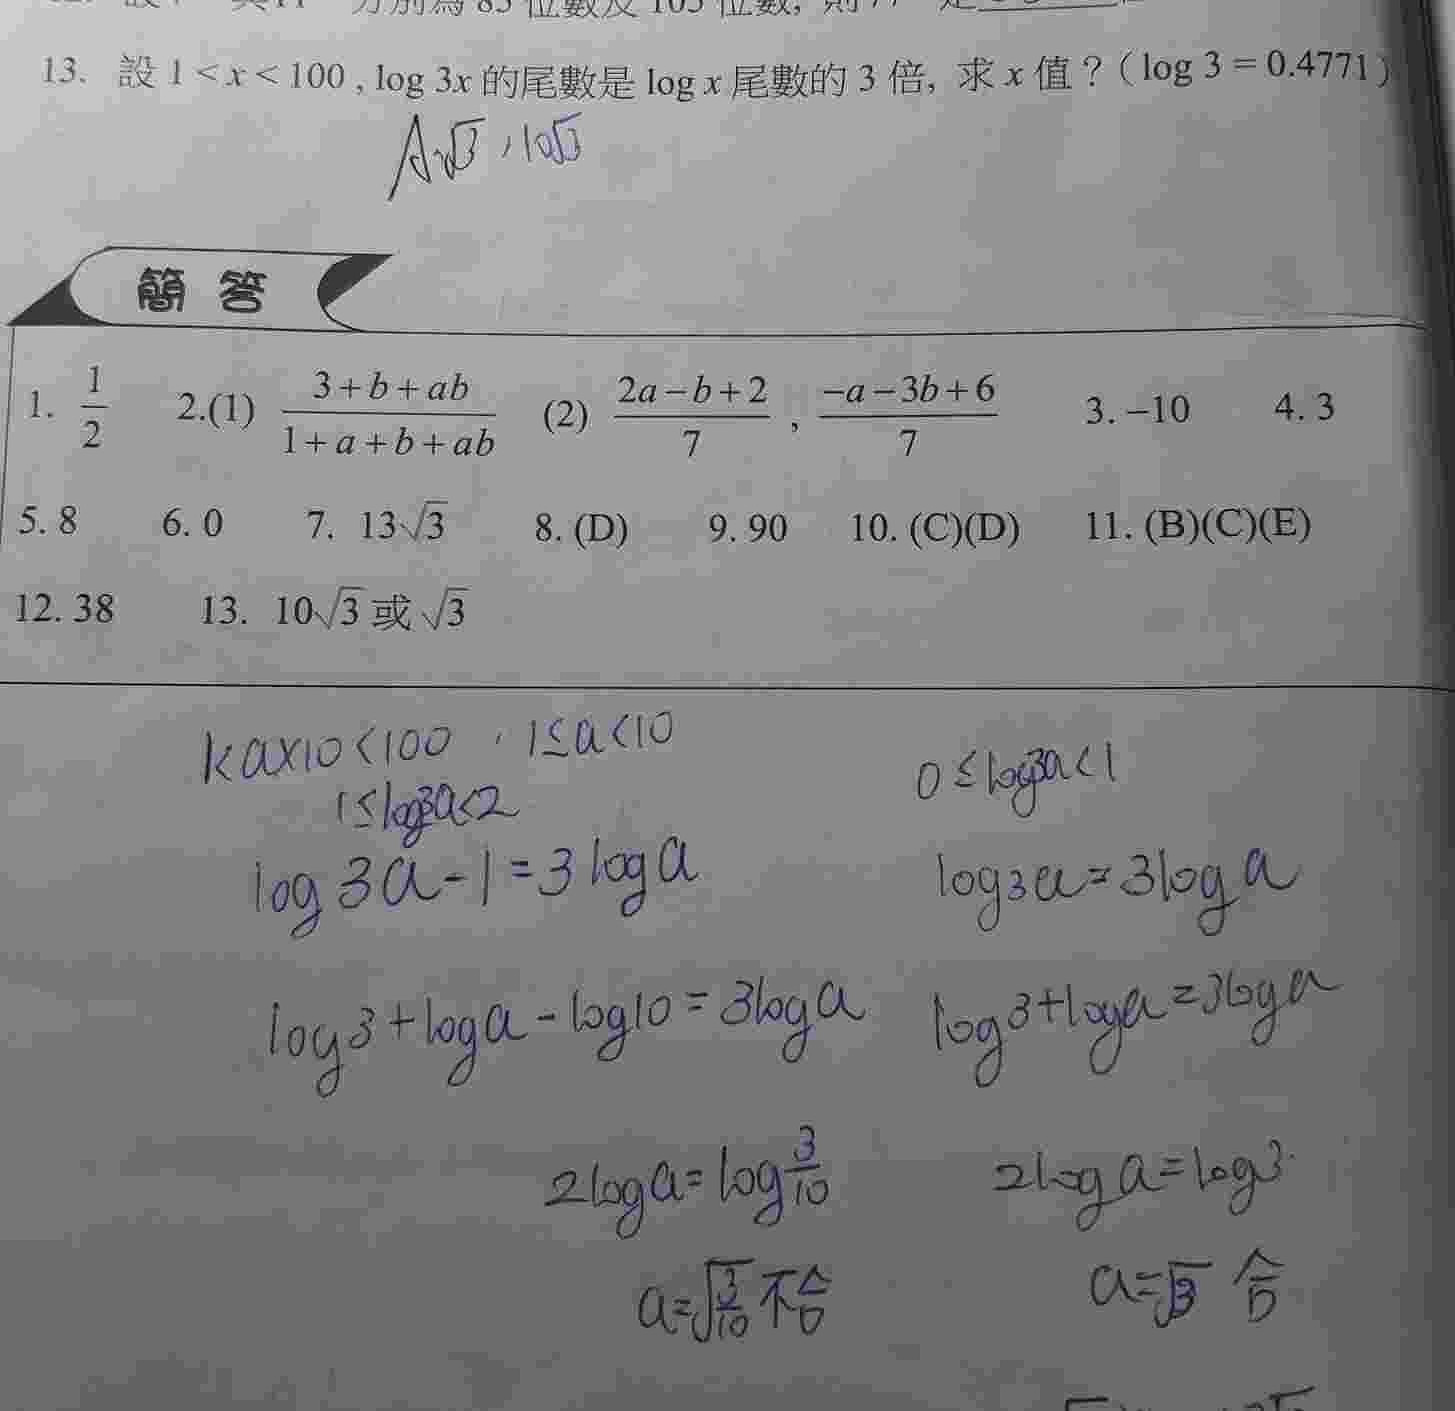 分別為 85 位數及 105 位數, 則
13. 設 1 < x < 100 , log 3x 的尾數是 log x 尾數的 3 倍, 求 x 值？( log 3 = 0.4771 )
A √3 , 10√3
簡答
1. 1/2 2.(1) (3+b+ab)/(1+a+b+ab) (2) (2a−b+2)/7 , (−a−3b+6)/7 3. −10 4. 3
5. 8 6. 0 7. 13√3 8. (D) 9. 90 10. (C)(D) 11. (B)(C)(E)
12. 38 13. 10√3 或 √3
1<a×10<100 , 1≤a<10
1≤log3a<2
log3a-1=3loga
log3+loga-log10=3loga
2loga=log3/10
a=√(3/10) 不合
0≤log3a<1
log3a=3loga
log3+loga=3loga
2loga=log3
a=√3 合